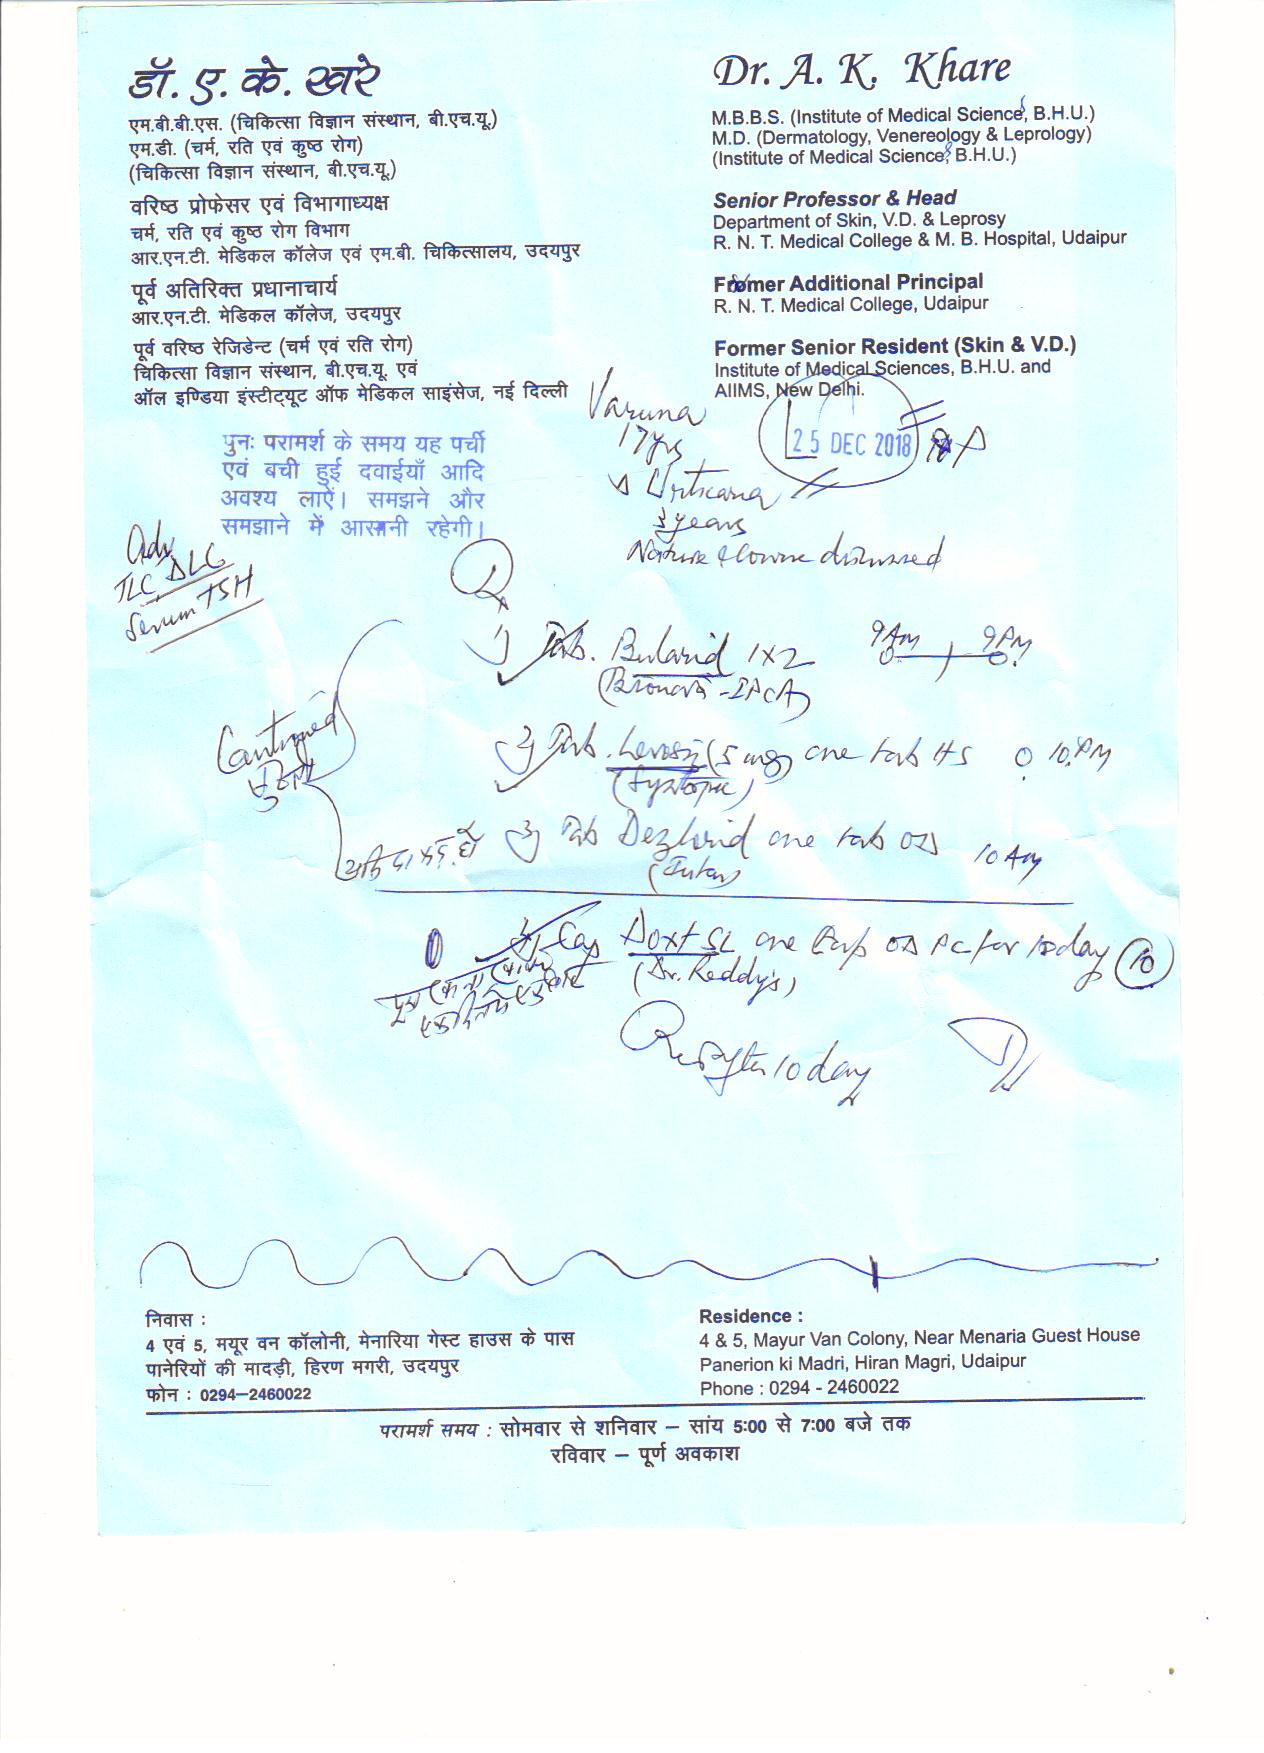 डॉ. ए. के. खरे
एम.बी.बी.एस. (चिकित्सा विज्ञान संस्थान, बी.एच.यू.)
एम.डी. (चर्म, रति एवं कुष्ठ रोग)
(चिकित्सा विज्ञान संस्थान, बी.एच.यू.)
वरिष्ठ प्रोफेसर एवं विभागाध्यक्ष
चर्म, रति एवं कुष्ठ रोग विभाग
आर.एन.टी. मेडिकल कॉलेज एवं एम.बी. चिकित्सालय, उदयपुर
पूर्व अतिरिक्त प्रधानाचार्य
आर.एन.टी. मेडिकल कॉलेज, उदयपुर
पूर्व वरिष्ठ रेजिडेन्ट (चर्म एवं रति रोग)
चिकित्सा विज्ञान संस्थान, बी.एच.यू. एवं
ऑल इण्डिया इंस्टीट्यूट ऑफ मेडिकल साइंसेज, नई दिल्ली
Dr. A. K. Khare
M.B.B.S. (Institute of Medical Sciences, B.H.U.)
M.D. (Dermatology, Venereology & Leprology)
(Institute of Medical Sciences, B.H.U.)
Senior Professor & Head
Department of Skin, V.D. & Leprosy
R. N. T. Medical College & M. B. Hospital, Udaipur
Former Additional Principal
R. N. T. Medical College, Udaipur
Former Senior Resident (Skin & V.D.)
Institute of Medical Sciences, B.H.U. and
AIIMS, New Delhi.
पुनः परामर्श के समय यह पर्ची
एवं बची हुई दवाईयाँ आदि
अवश्य लाऐं। समझने और
समझाने में आसानी रहेगी।
Varuna
17yrs
25 DEC 2018
Urticaria
3 years
Nature & Course discussed
Adv
TLC, DLC
Serum TSH
1) Tab. 1x2 9 Am 9 PM
2) Tab. (5 mg) one tab HS 10 PM
3) Tab one tab OD 10 Am
4) Cap Doxt SL one Cap OD PC for 10 day 10
(Dr. Reddy's)
after 10 day
निवास :
4 एवं 5, मयूर वन कॉलोनी, मेनारिया गेस्ट हाउस के पास
पानेरियों की मादड़ी, हिरण मगरी, उदयपुर
फोन : 0294–2460022
Residence :
4 & 5, Mayur Van Colony, Near Menaria Guest House
Panerion ki Madri, Hiran Magri, Udaipur
Phone : 0294 - 2460022
परामर्श समय : सोमवार से शनिवार – सांय 5:00 से 7:00 बजे तक
रविवार – पूर्ण अवकाश